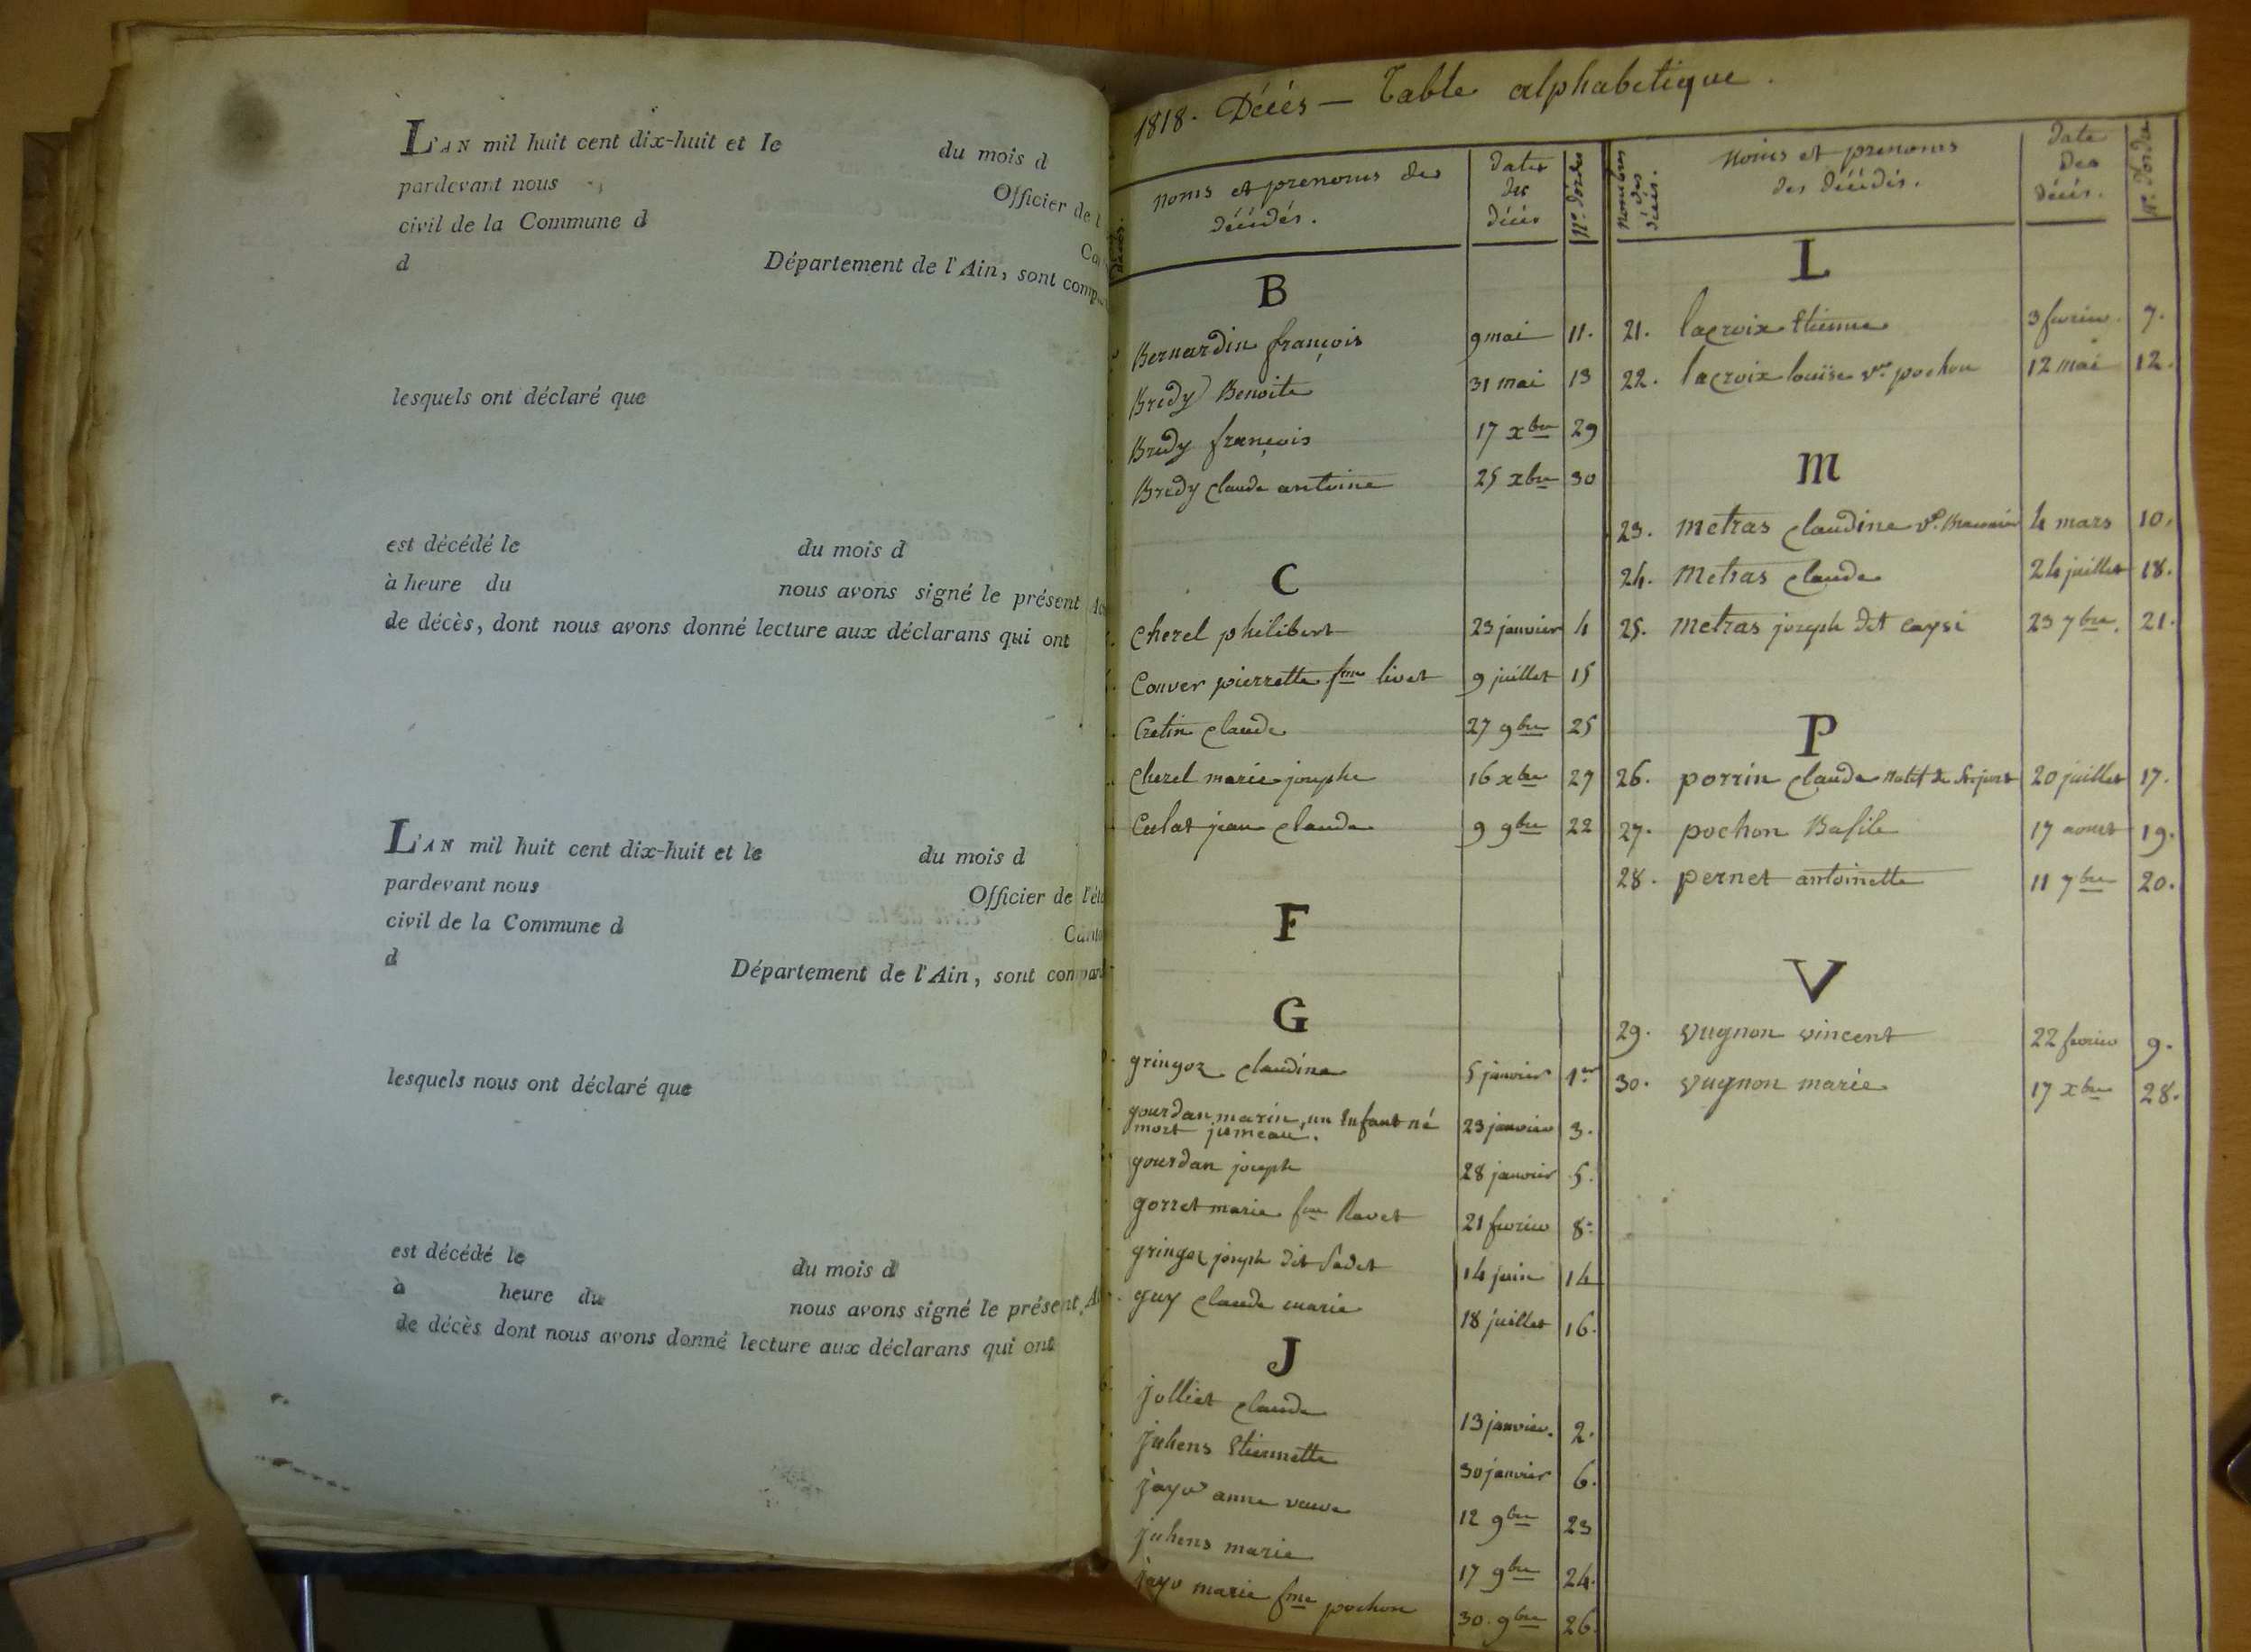 L'AN mil huit cent dix-huit et le du mois d
pardevant nous Officier de l
civil de la Commune d
d Département de l'Ain, sont comp
lesquels ont déclaré que
est décédé le du mois d
à heure du nous avons signé le présent
de décès, dont nous avons donné lecture aux déclarans qui ont
L'AN mil huit cent dix-huit et le du mois d
pardevant nous Officier de l'ét
civil de la Commune d
d Département de l'Ain, sont compar
lesquels nous ont déclaré que
est décédé le du mois d
à heure du nous avons signé le présent
de décès dont nous avons donné lecture aux déclarans qui ont
1818. Décès — Table alphabetique.
noms et prenoms des décédés. dates des décès Nos. d'ordre
B
Bernardin françois 9 mai 11.
Bredy Benoite 31 mai 13
Bredy françois 17 xbre 29
Bredy claude antoine 25 xbre 30
C
Cherel philibert 23 janvier 4
Couver pierrette fme livet 9 juillet 15
Cretin claude 27 9bre 25
Cherel marie josephe 16 xbre 27
Culat jean claude 9 9bre 22
F
G
gringoz claudine 5 janvier 1er
gourdan marin, un Enfant né
mort jumeau. 23 janvier 3.
gourdan joseph 28 janvier 5.
gorret marie fme Ravet 21 fevrier 8.
gringoz joseph dit Cadet 14 juin 14
guy claude marie 18 juillet 16.
J
jolliet claude 13 janvier. 2.
juhens Etiennette 30 janvier 6.
jayr anne veuve 12 9bre 23
juhens marie 17 9bre 24.
jayr marie fme pochon 30. 9bre 26.
noms et prenoms des décédés. date des décès. No. d'ordre
L
21. lacroix Etienne 3 fevrier. 7.
22. lacroix louise ve. pochon 12 mai 12.
M
23. metras Claudine ve. 4 mars 10.
24. Metras Claude 24 juillet 18.
25. metras joseph dit caysi 23 7bre. 21.
P
26. porrin Claude natif de 20 juillet 17.
27. pochon Basile 17 aoust 19.
28. pernet antoinette 11 7bre 20.
V
29. vugnon vincent 22 fevrier 9.
30. vugnon marie 17 xbre 28.